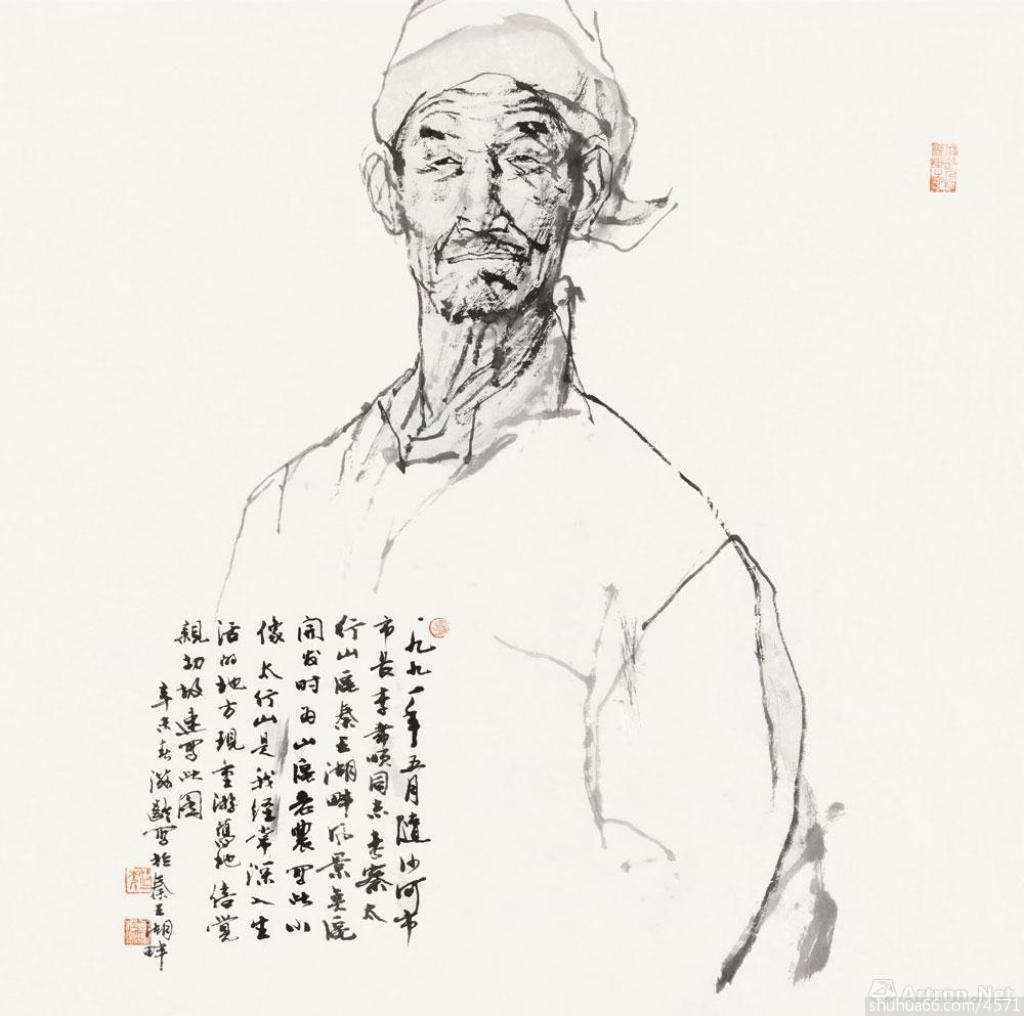 一九九一年五月隨沙河市
市長李順同志考察太
行山區秦王湖畔风景奌區
開发时为山區老農写此小
像太行山是我经常深入生
活的地方現重游舊地倍覺
親切故速写此图
辛未春滋齡写於秦王湖畔
Artron.Net
shuhua66.com/4571